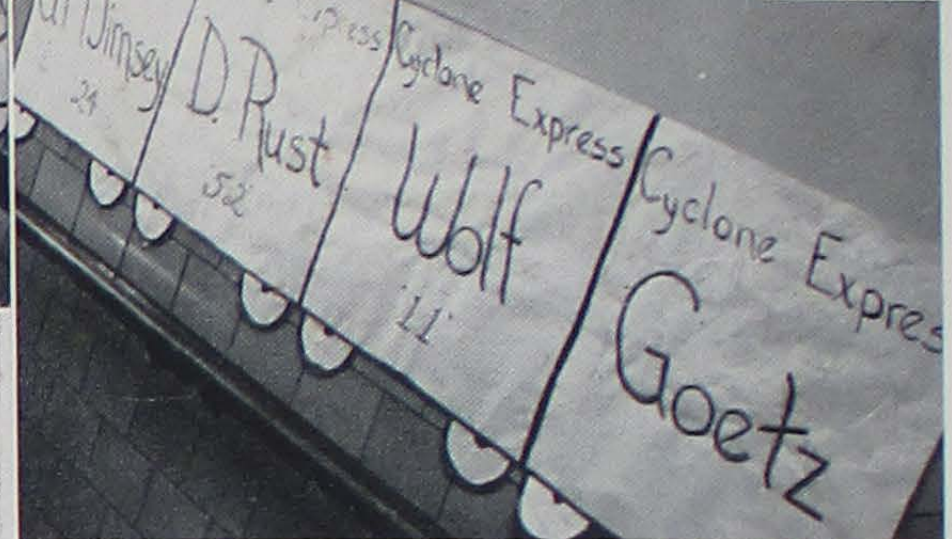 Jimsey
24
press
D. Rust
52
Cyclone Express
Wolf
11
Cyclone Expres
Goetz